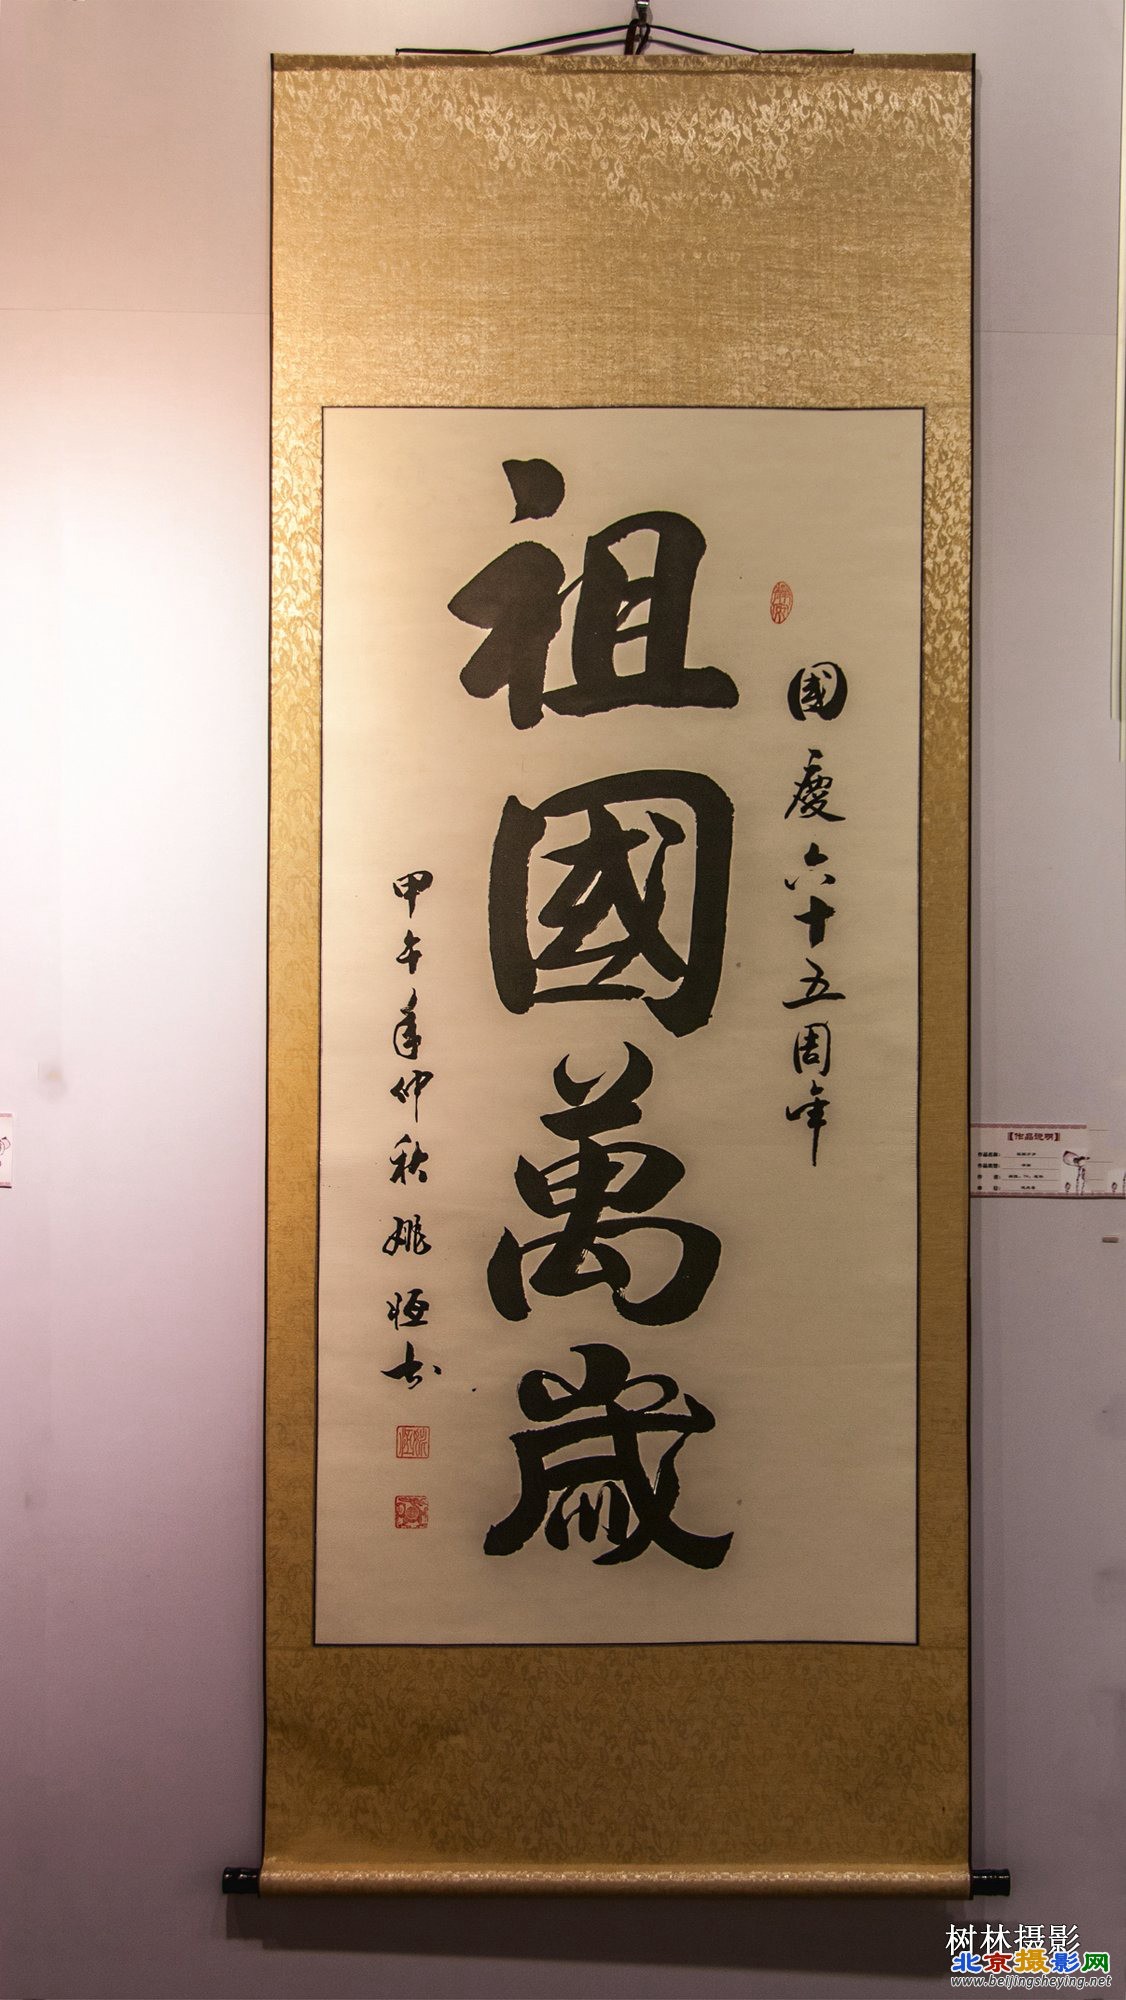 國慶六十五周年
祖國萬歲
甲午年仲秋姚恒书
【作品说明】
作品名称：
作品类型：
树林摄影
北京摄影网
www.beijingsheying.net